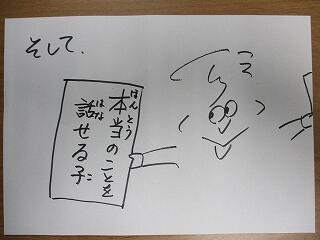 そして、
本当のことを
話せる子